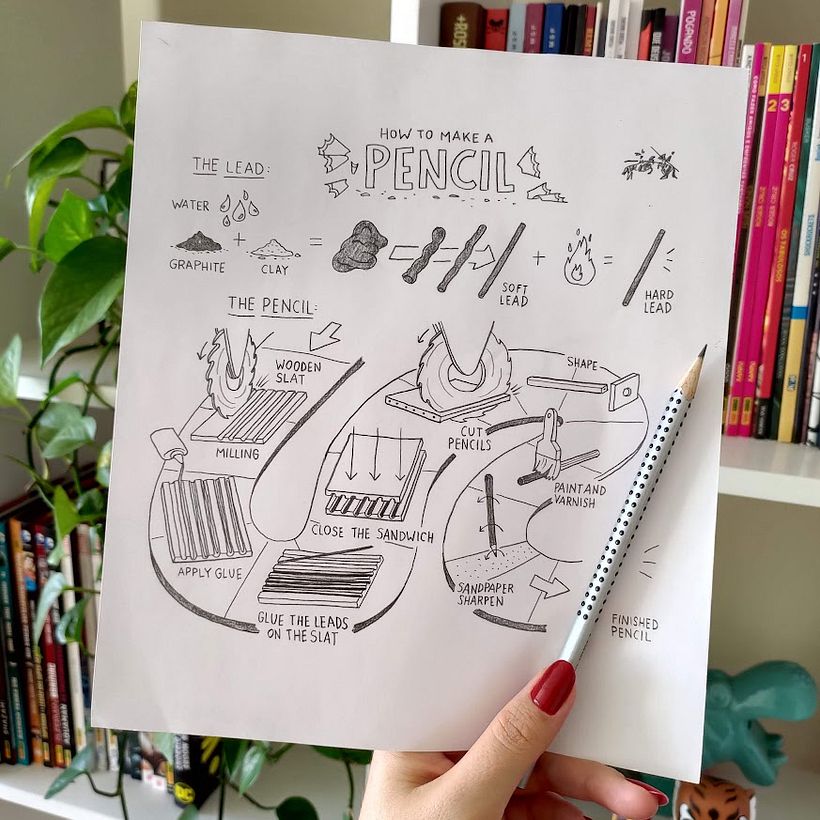 HOW TO MAKE A
PENCIL
THE LEAD:
WATER
GRAPHITE
CLAY
+
=
+
=
SOFT
LEAD
HARD
LEAD
THE PENCIL:
WOODEN
SLAT
MILLING
APPLY GLUE
GLUE THE LEADS
ON THE SLAT
CLOSE THE SANDWICH
CUT
PENCILS
SHAPE
PAINT AND
VARNISH
SANDPAPER
SHARPEN
FINISHED
PENCIL
POGANDO
2
3
1